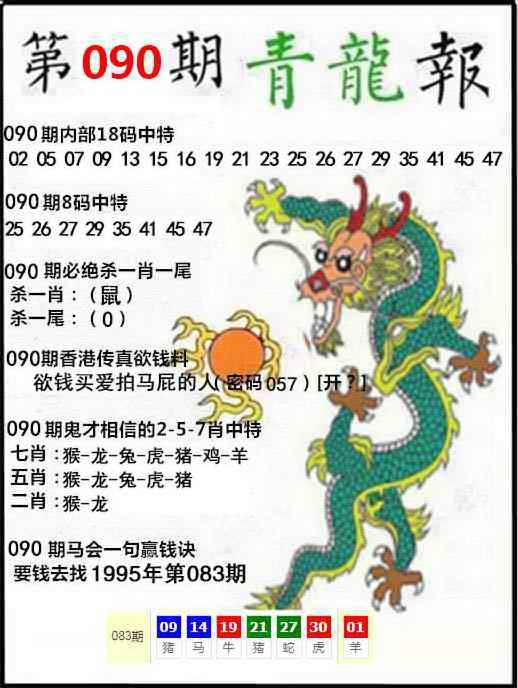 第090期青龍報
090期内部18码中特
02 05 07 09 13 15 16 19 21 23 25 26 27 29 35 41 45 47
090期8码中特
25 26 27 29 35 41 45 47
090 期必绝杀一肖一尾
杀一肖：（鼠）
杀一尾：（0）
090期香港传真欲钱料
欲钱买爱拍马屁的人(密码057）[开？]
090期鬼才相信的2-5-7肖中特
七肖：猴-龙-兔-虎-猪-鸡-羊
五肖：猴-龙-兔-虎-猪
二肖：猴-龙
090 期马会一句赢钱诀
要钱去找1995年第083期
083期 09 14 19 21 27 30 01
猪 马 牛 猪 蛇 虎 羊